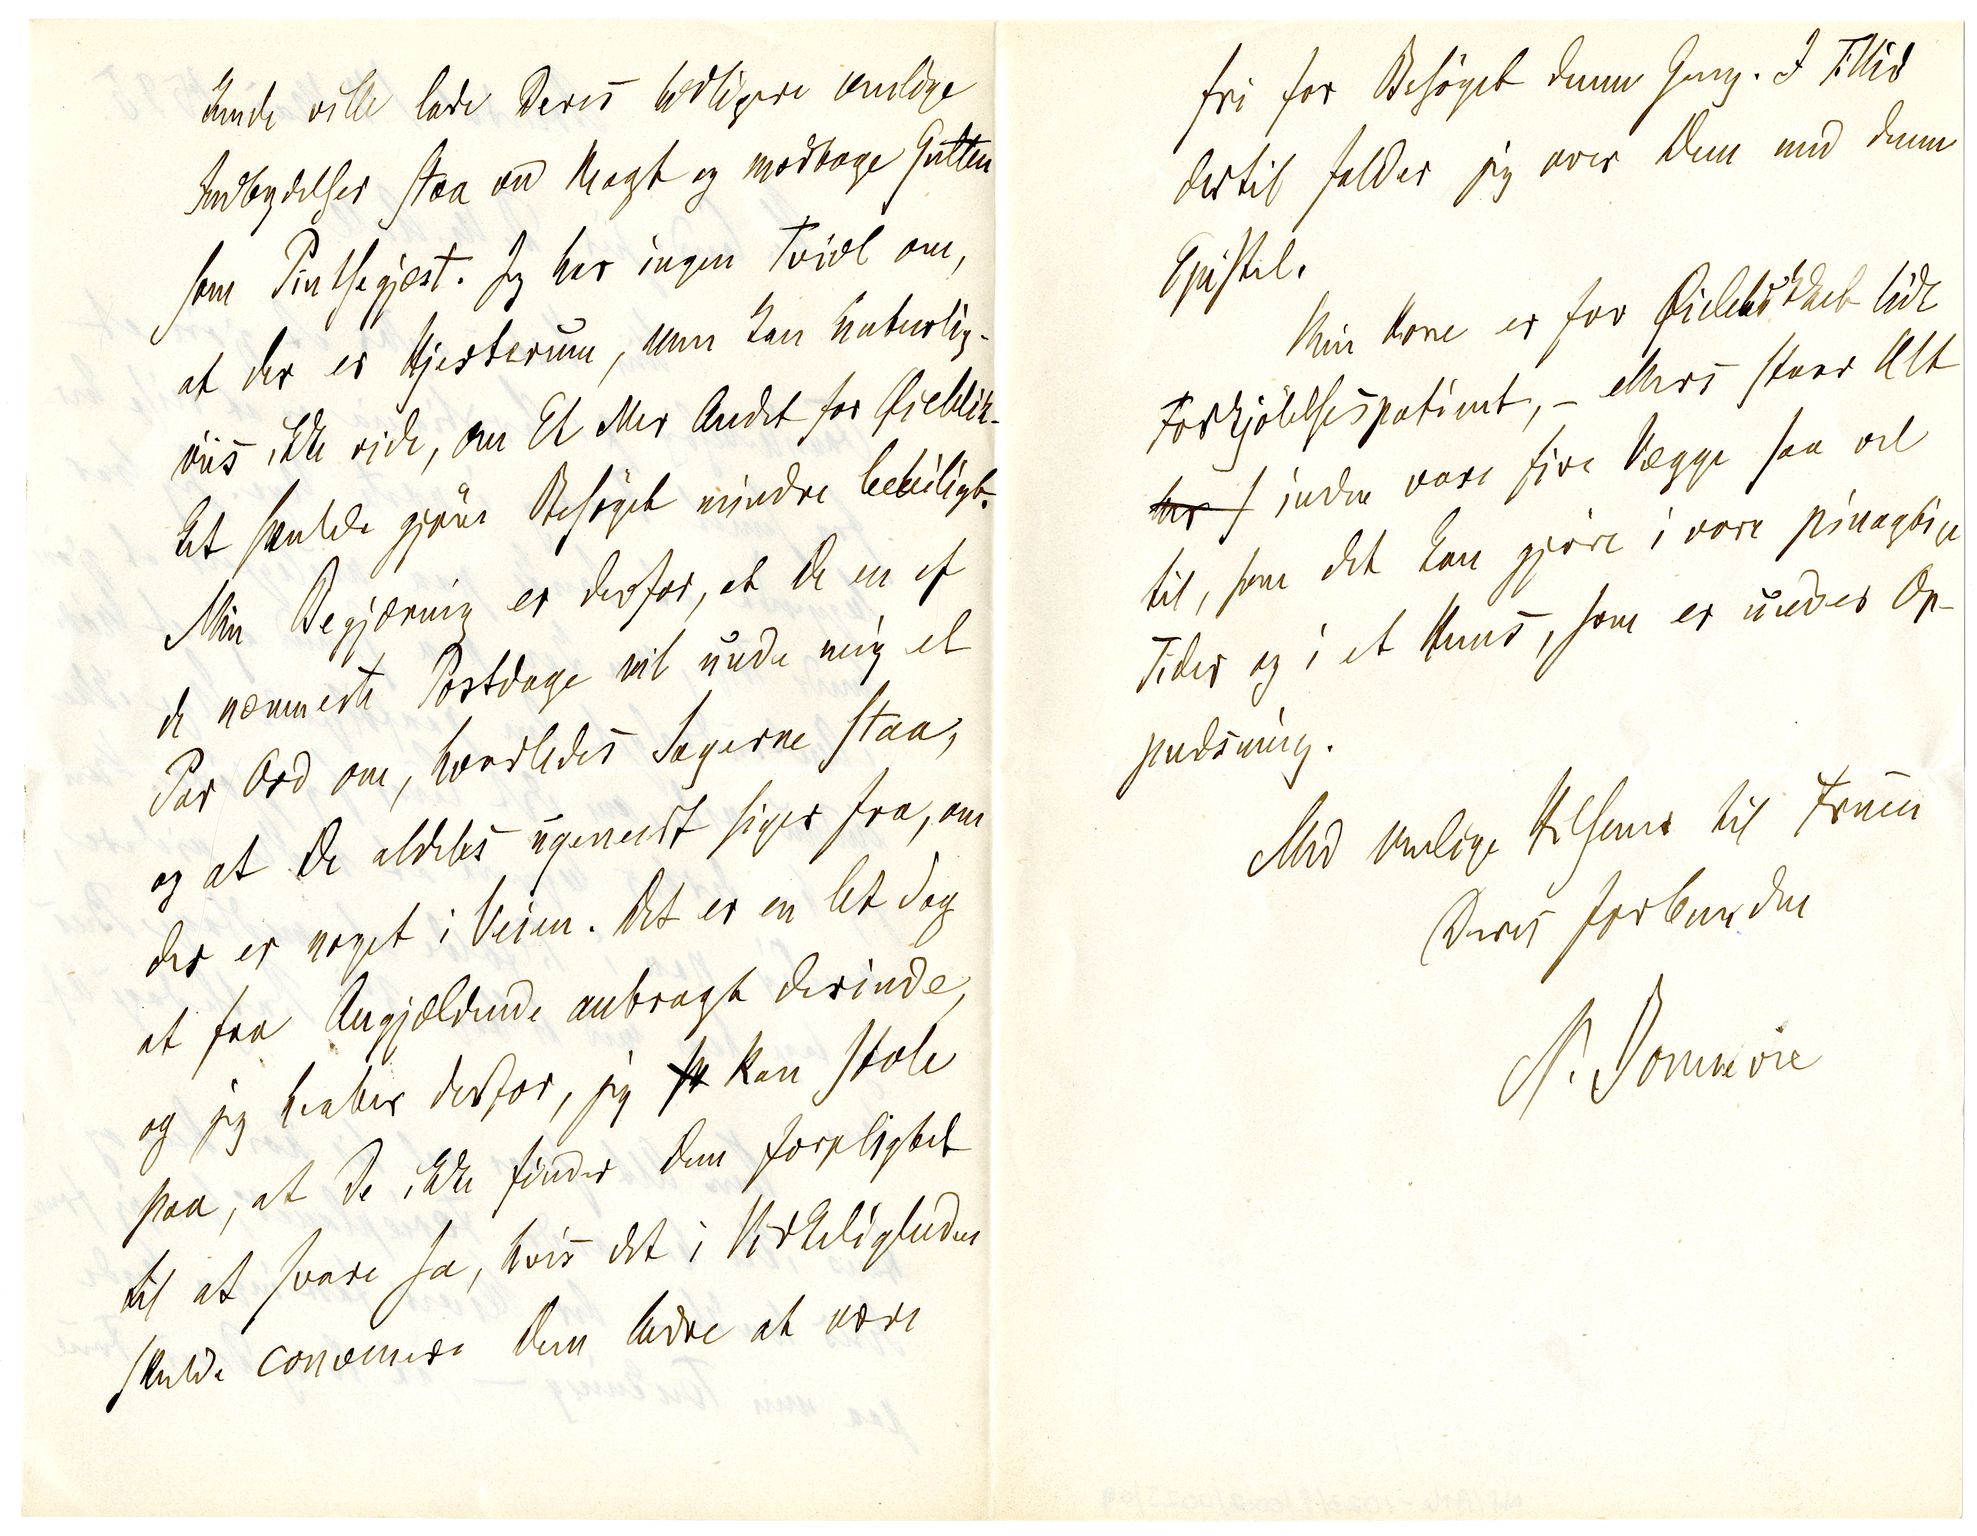 kunde ville lade Deres tidligere venlige
Indbydelser staa ved Magt og modtage Gutten
som Pintsegjæst. Jeg har ingen Tvivl om,
at der er Hjerterum, men kan naturlig-
viis ikke vide, om Et eller Andet for Øieblik-
ket skulde gjøre Besøget mindre beleiligt.
Min Begjæring er derfor, at De en af
de nærmeste Postdage vil unde mig et
Par Ord om, hvorledes Sagerne staa,
og at De aldeles ugeneert siger fra, om
der er noget i Veien. Det er en let Sag
at faa Angjældende anbragt derinde,
og jeg haaber derfor, jeg kan stole
paa, at De ikke finder Dem forpligtet
til at svare Ja, hvis det i Virkeligheden
skulde convenere Dem bedre at være
fri for Besøget denne Gang. I Tillid
dertil falder jeg over Dem med denne
Epistel.
Min Kone er for Øieblikket lidt
Forkjølelsespatient, – ellers staar Alt
inden vore fire Vægge saa vel
til, som det kan gjøre i vore pinagtige
Tider og i et Huus, som er under Op-
pudsning.
Med venlige Hilsener til Fruen
Deres forbundne
N. Bonnevie